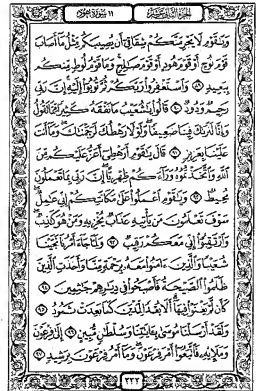 الجزء الثاني عشر
١١ سورة هود
وَيَٰقَوْمِ لَا يَجْرِمَنَّكُمْ شِقَاقِىٓ أَن يُصِيبَكُم مِّثْلُ مَآ أَصَابَ
قَوْمَ نُوحٍ أَوْ قَوْمَ هُودٍ أَوْ قَوْمَ صَٰلِحٍ وَمَا قَوْمُ لُوطٍ مِّنكُم
بِبَعِيدٍ ٨٩ وَٱسْتَغْفِرُوا۟ رَبَّكُمْ ثُمَّ تُوبُوٓا۟ إِلَيْهِ إِنَّ رَبِّى
رَحِيمٌ وَدُودٌ ٩٠ قَالُوا۟ يَٰشُعَيْبُ مَا نَفْقَهُ كَثِيرًا مِّمَّا تَقُولُ
وَإِنَّا لَنَرَىٰكَ فِينَا ضَعِيفًا وَلَوْلَا رَهْطُكَ لَرَجَمْنَٰكَ وَمَآ أَنتَ
عَلَيْنَا بِعَزِيزٍ ٩١ قَالَ يَٰقَوْمِ أَرَهْطِىٓ أَعَزُّ عَلَيْكُم مِّنَ
ٱللَّهِ وَٱتَّخَذْتُمُوهُ وَرَآءَكُمْ ظِهْرِيًّا إِنَّ رَبِّى بِمَا تَعْمَلُونَ
مُحِيطٌ ٩٢ وَيَٰقَوْمِ ٱعْمَلُوا۟ عَلَىٰ مَكَانَتِكُمْ إِنِّى عَٰمِلٌ
سَوْفَ تَعْلَمُونَ مَن يَأْتِيهِ عَذَابٌ يُخْزِيهِ وَمَنْ هُوَ كَٰذِبٌ
وَٱرْتَقِبُوٓا۟ إِنِّى مَعَكُمْ رَقِيبٌ ٩٣ وَلَمَّا جَآءَ أَمْرُنَا نَجَّيْنَا
شُعَيْبًا وَٱلَّذِينَ ءَامَنُوا۟ مَعَهُۥ بِرَحْمَةٍ مِّنَّا وَأَخَذَتِ ٱلَّذِينَ
ظَلَمُوا۟ ٱلصَّيْحَةُ فَأَصْبَحُوا۟ فِى دِيَٰرِهِمْ جَٰثِمِينَ ٩٤
كَأَن لَّمْ يَغْنَوْا۟ فِيهَآ أَلَا بُعْدًا لِّمَدْيَنَ كَمَا بَعِدَتْ ثَمُودُ ٩٥
وَلَقَدْ أَرْسَلْنَا مُوسَىٰ بِـَٔايَٰتِنَا وَسُلْطَٰنٍ مُّبِينٍ ٩٦ إِلَىٰ فِرْعَوْنَ
وَمَلَإِي۟هِۦ فَٱتَّبَعُوٓا۟ أَمْرَ فِرْعَوْنَ وَمَآ أَمْرُ فِرْعَوْنَ بِرَشِيدٍ ٩٧
٢٣٢